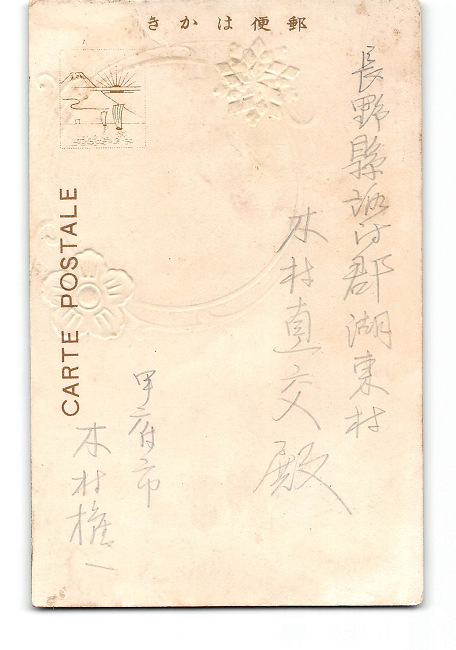 郵便はかき
長野縣諏訪郡湖東村
木村直交殿
甲府市
木村権一
CARTE POSTALE